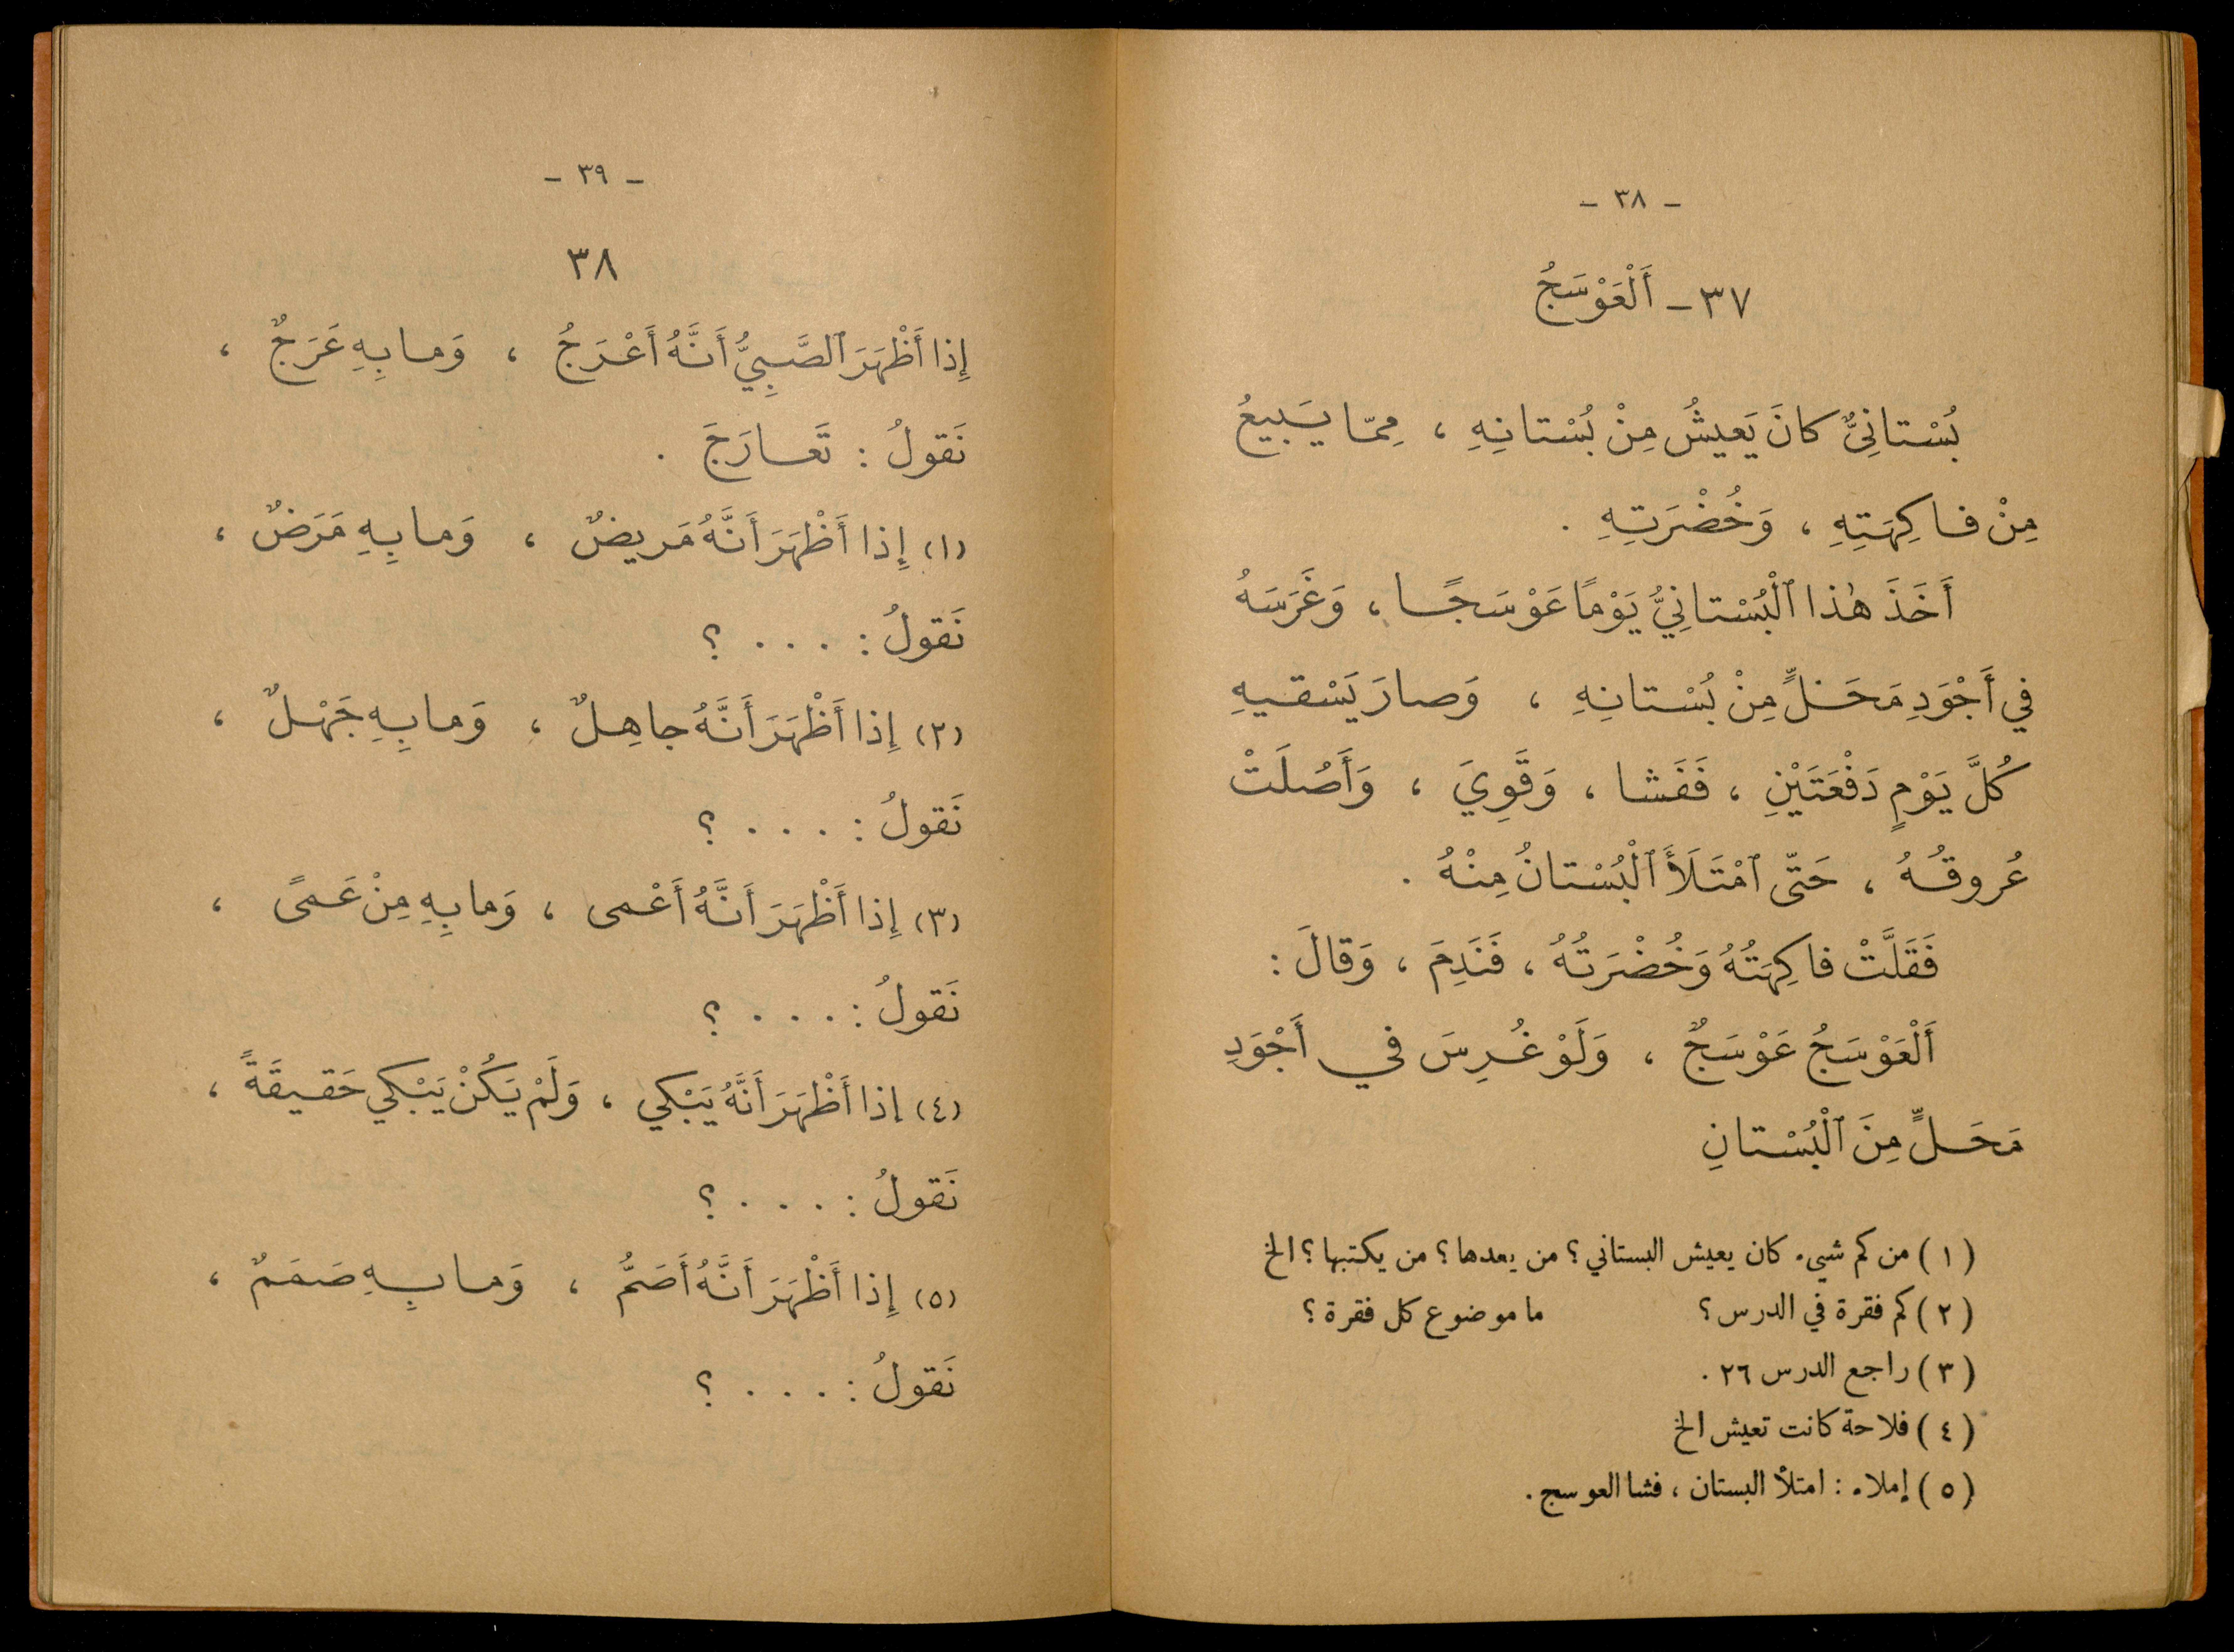 - ٣٨ -
٣٧ - أَلْعَوْسَجُ
بُسْتانِيٌّ كانَ يَعيشُ مِنْ بُسْتانِهِ ، مِمّا يَبيعُ
مِنْ فاكِهَتِهِ ، وَخُضْرَتِهِ .
أَخَذَ هٰذا ٱلْبُسْتانِيُّ يَوْمًا عَوْسَجًا ، وَغَرَسَهُ
في أَجْوَدِ مَحَلٍّ مِنْ بُسْتانِهِ ، وَصارَ يَسْقيهِ
كُلَّ يَوْمٍ دَفْعَتَيْنِ ، فَفَشا ، وَقَوِيَ ، وَأَصُلَتْ
عُروقُهُ ، حَتّى ٱمْتَلَأَ ٱلْبُسْتانُ مِنْهُ .
فَقَلَّتْ فاكِهَتُهُ وَخُضْرَتُهُ ، فَنَدِمَ ، وَقالَ :
أَلْعَوْسَجُ عَوْسَجٌ ، وَلَوْ غُرِسَ في أَجْوَدِ
مَحَلٍّ مِنَ ٱلْبُسْتانِ
( ١ ) من كم شيء كان يعيش البستاني ؟ من يعدها ؟ من يكتبها ؟ الخ
( ٢ ) كم فقرة في الدرس ؟ ما موضوع كل فقرة ؟
( ٣ ) راجع الدرس ٢٦ .
( ٤ ) فلاحة كانت تعيش الخ
( ٥ ) إملاء : امتلأ البستان ، فشا العوسج .
- ٣٩ -
٣٨
إِذا أَظْهَرَ ٱلصَّبِيُّ أَنَّهُ أَعْرَجُ ، وَما بِهِ عَرَجٌ ،
نَقولُ : تَعارَجَ .
(١) إِذا أَظْهَرَ أَنَّهُ مَريضٌ ، وَما بِهِ مَرَضٌ ،
نَقولُ : . . . ؟
(٢) إِذا أَظْهَرَ أَنَّهُ جاهِلٌ ، وَما بِهِ جَهْلٌ ،
نَقولُ : . . . ؟
(٣) إِذا أَظْهَرَ أَنَّهُ أَعْمى ، وَما بِهِ مِنْ عَمىً ،
نَقولُ : . . . ؟
(٤) إذا أَظْهَرَ أَنَّهُ يَبْكي ، وَلَمْ يَكُنْ يَبْكي حَقيقَةً ،
نَقولُ : . . . ؟
(٥) إِذا أَظْهَرَ أَنَّهُ أَصَمُّ ، وَما بِهِ صَمَمٌ ،
نَقولُ : . . . ؟